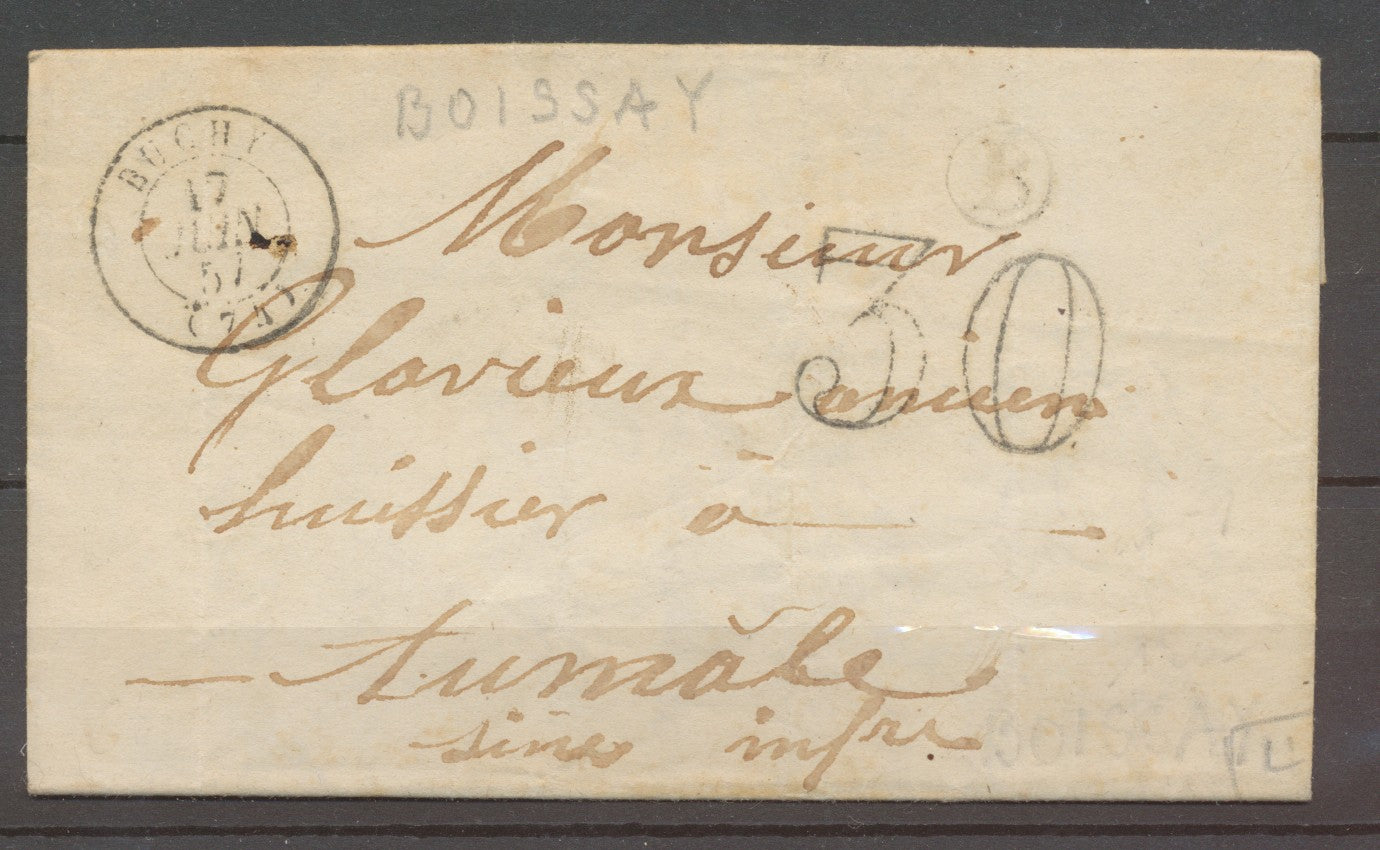 BOISSAY
BUCHY
17
JUIN
57
(74)
B
Monsieur
30
Glorieux ancien
huissier à
Aumâle
sine infre
BOISSAY